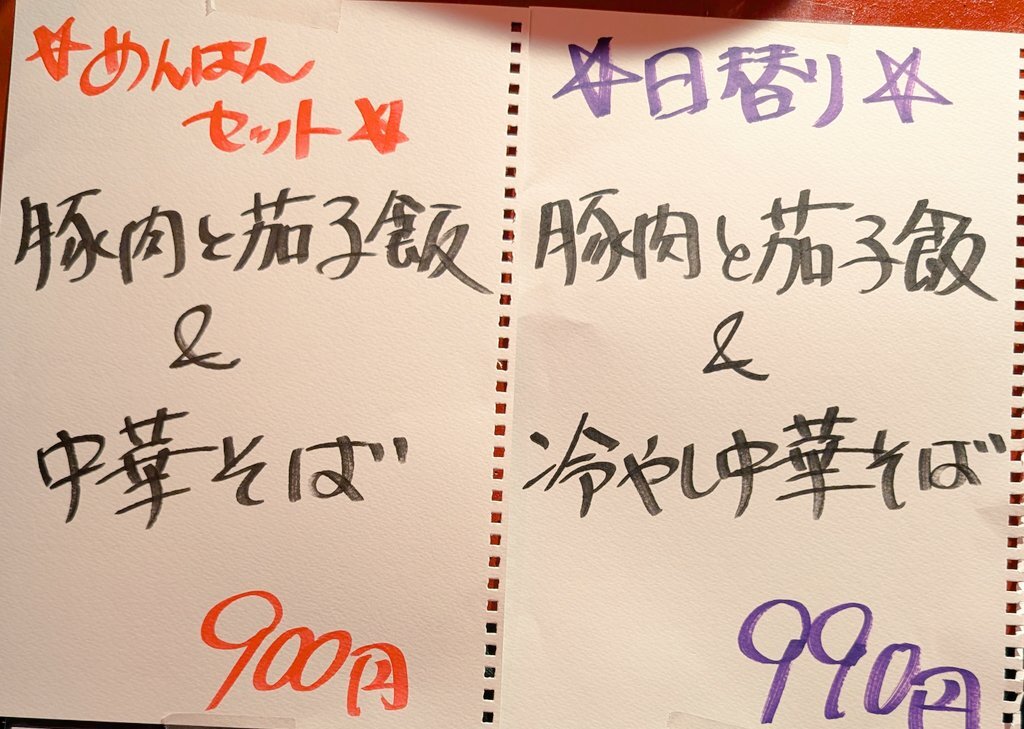 ☆めんはん
セット☆
豚肉と茄子飯
&
中華そば
900円
☆日替り☆
豚肉と茄子飯
&
冷やし中華そば
990円